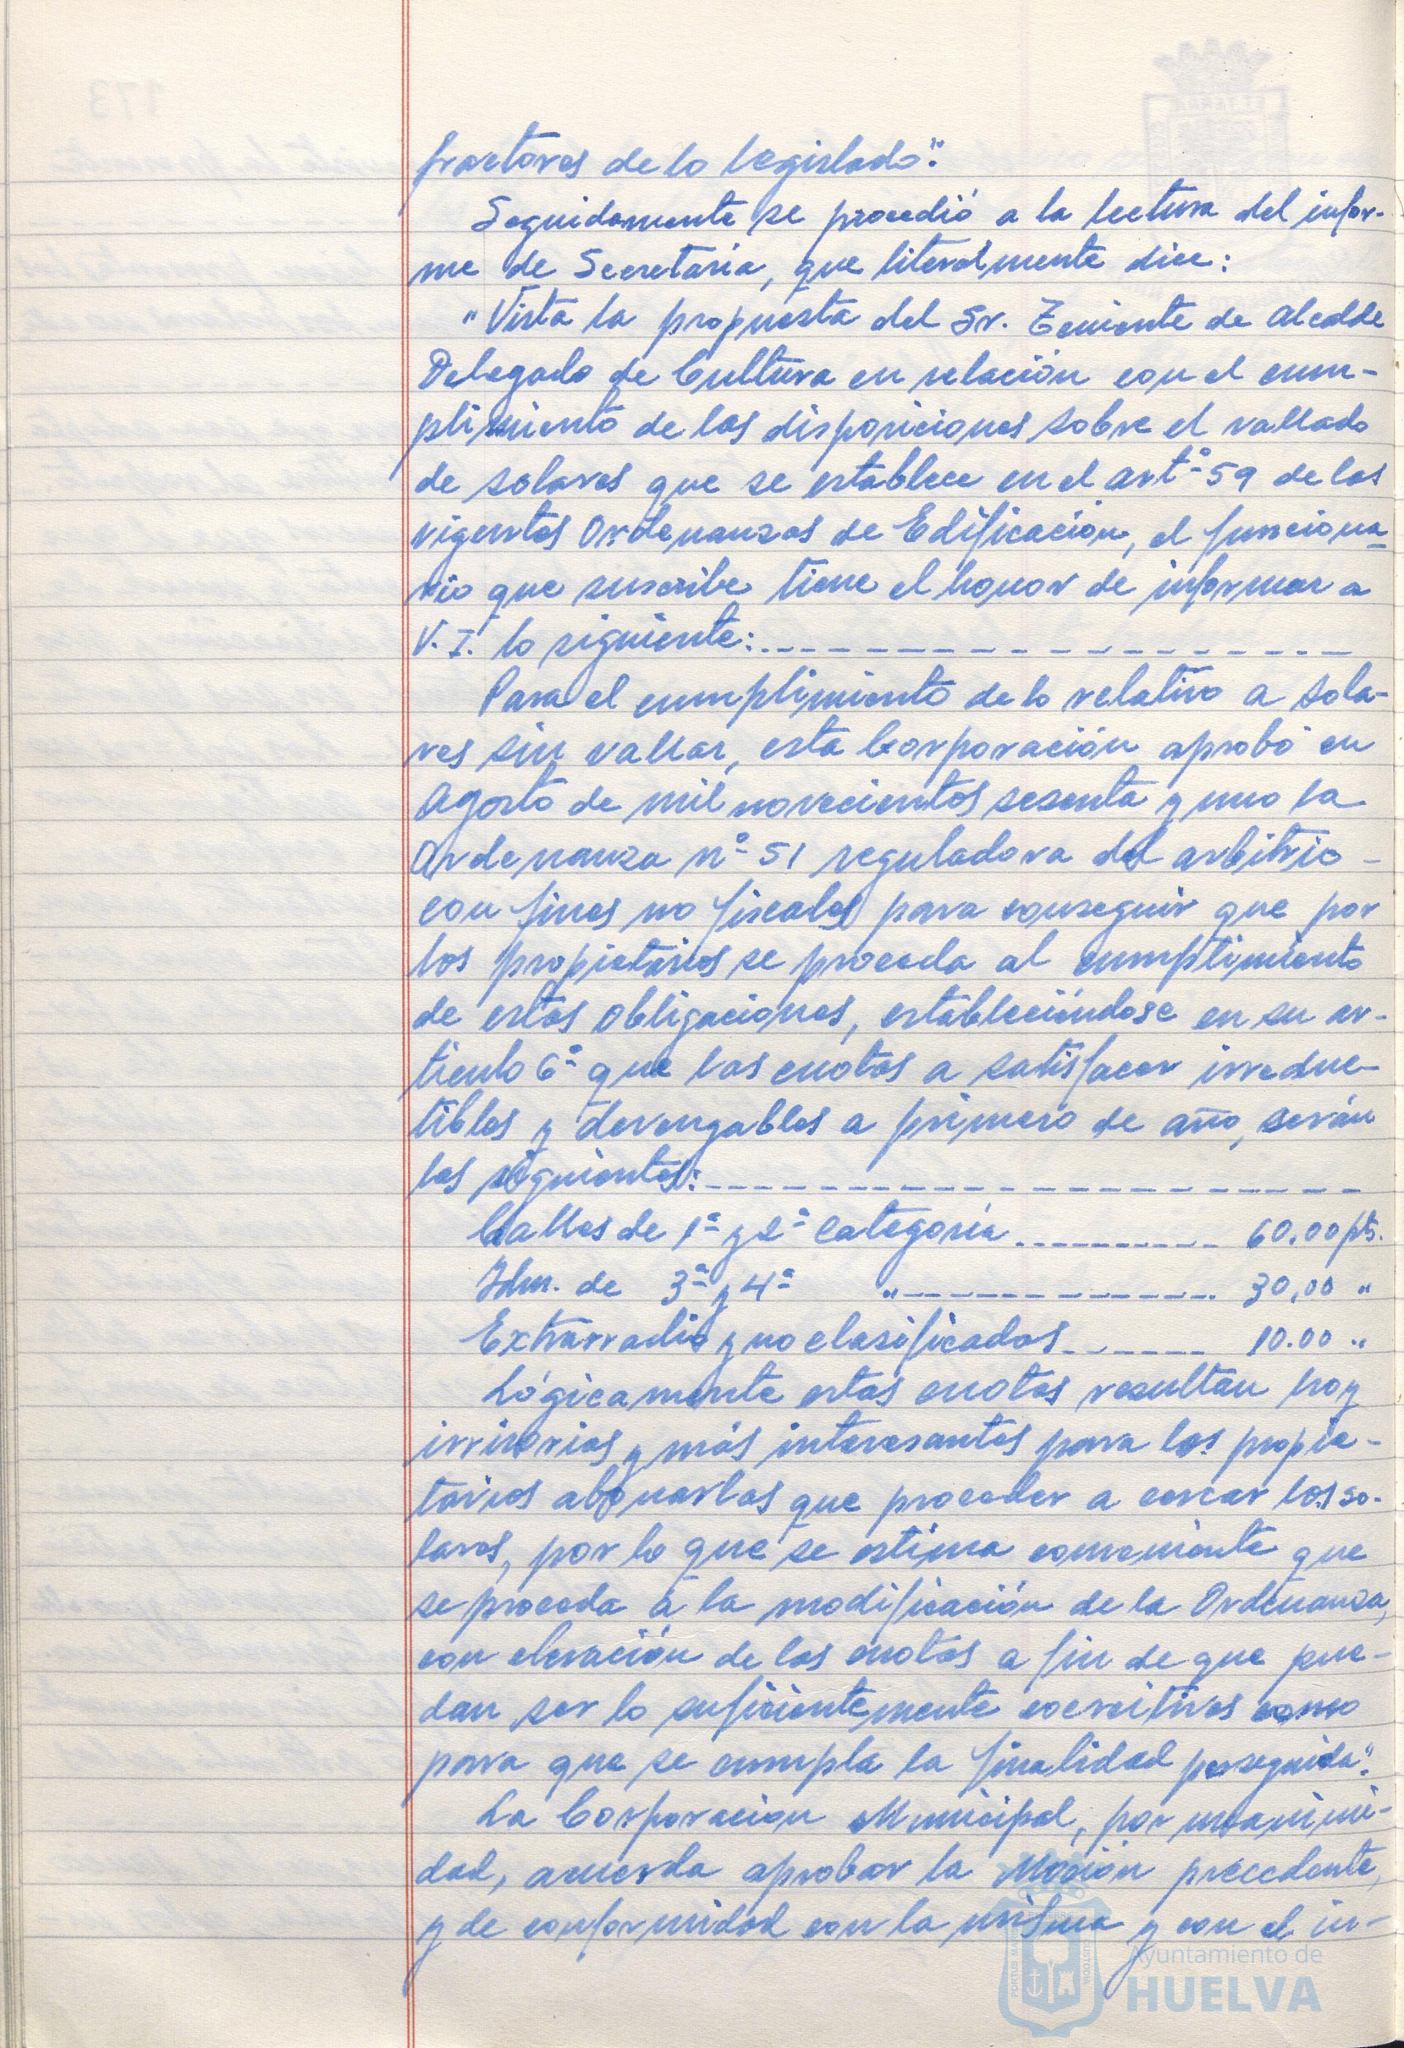 fractores de lo legislado".
Seguidamente se procedió a la lectura del infor-
me de Secretaría, que literalmente dice:
"Vista la propuesta del Sr. Teniente de Alcalde
Delegado de Cultura en relación con el cum-
plimiento de las disposiciones sobre el vallado
de solares que se establece en el artº 59 de las
vigentes Ordenanzas de Edificación, el funciona-
rio que suscribe tiene el honor de informar a
V.I. lo siguiente:
Para el cumplimiento de lo relativo a sola-
res sin vallar, esta Corporación aprobó en
Agosto de mil novecientos sesenta y uno la
Ordenanza nº 51 reguladora del arbitrio
con fines no fiscales para conseguir que por
los propietarios se proceda al cumplimiento
de estas obligaciones, estableciéndose en su ar-
tículo 6º que las cuotas a satisfacer irreduc-
tibles y devengables a primero de año, serán
las siguientes:
Calles de 1ª y 2ª Categoría 60.00 pts.
Idm. de 3ª y 4ª " 30,00 "
Extrarradio y no clasificadas 10.00 "
Lógicamente estas cuotas resultan hoy
irrisorias y más interesantes para los propie-
tarios abonarlas que proceder a cercar los so-
lares, por lo que se estima conveniente que
se proceda a la modificación de la Ordenanza,
con elevación de las cuotas a fin de que pue-
dan ser lo suficientemente coercitivas como
para que se cumpla la finalidad perseguida".
La Corporación Municipal, por unanimi-
dad, acuerda aprobar la Moción precedente,
y de conformidad con la misma y con el in-
Ayuntamiento de
HUELVA